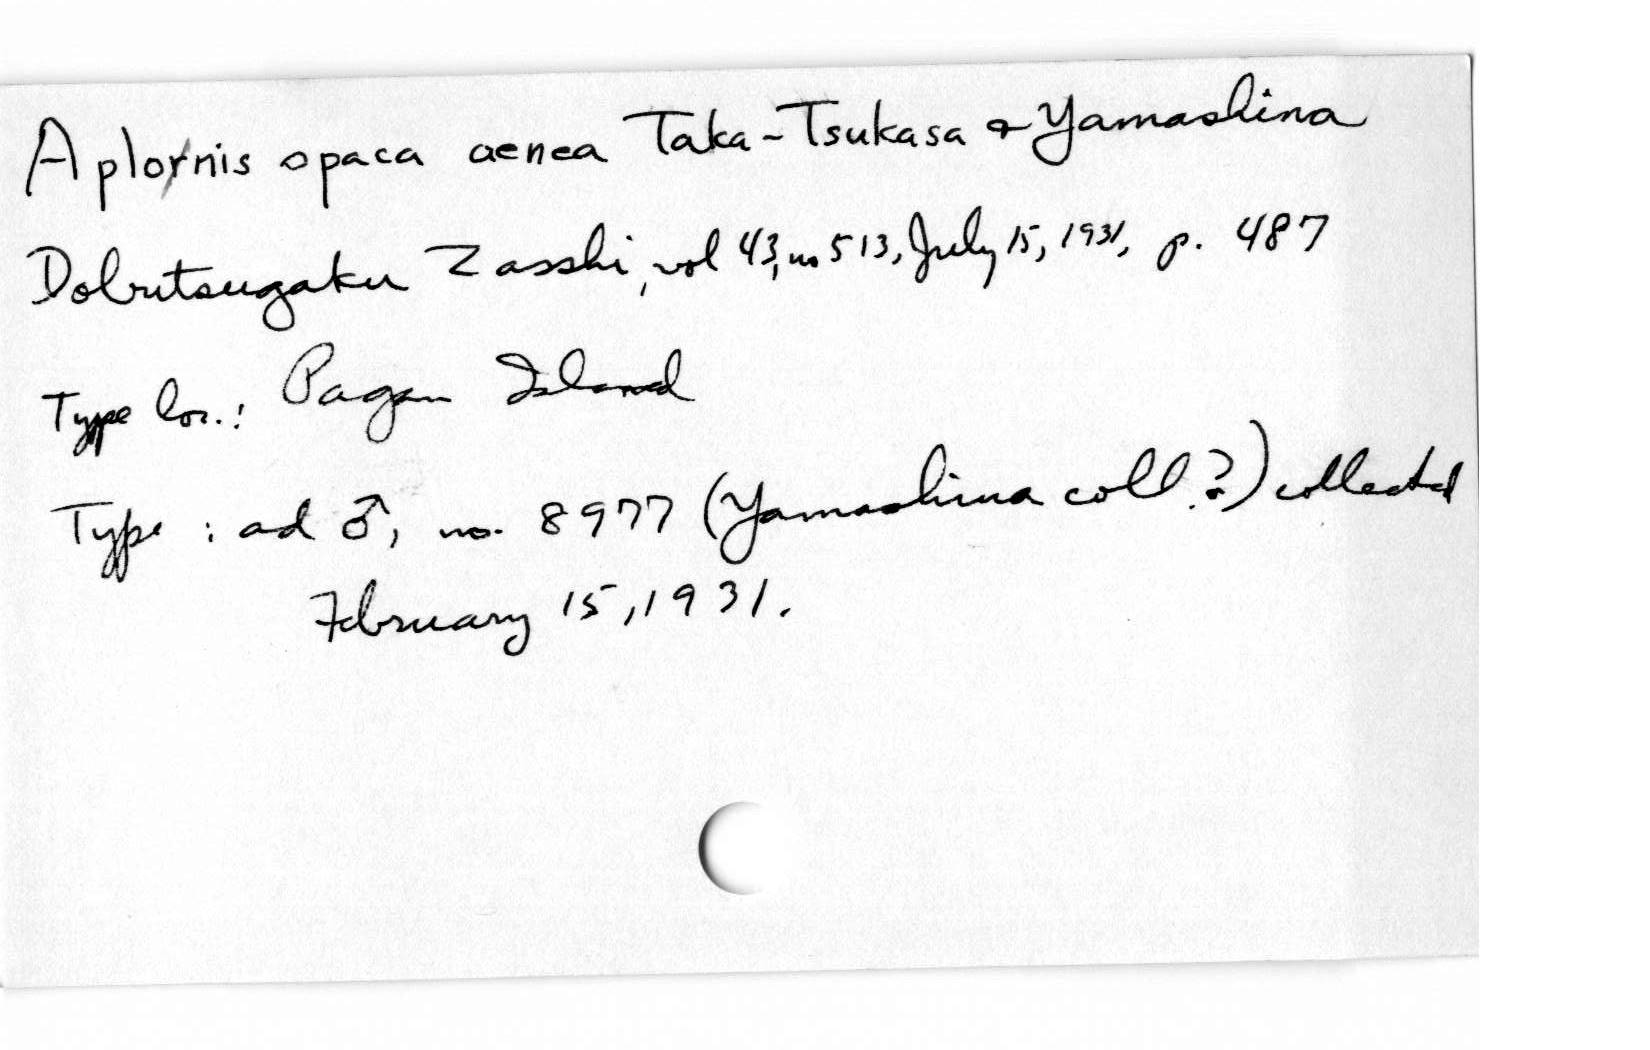 Aplornis opaca aenea Taka-Tsukasa & Yamashina
Dobutsugaku Zasshi, vol 43, no 513, July 15, 1931, p. 487
Type loc.: Pagan Island
Type: ad ♂, no. 8977 (Yamashina coll?) collected
February 15, 1931.